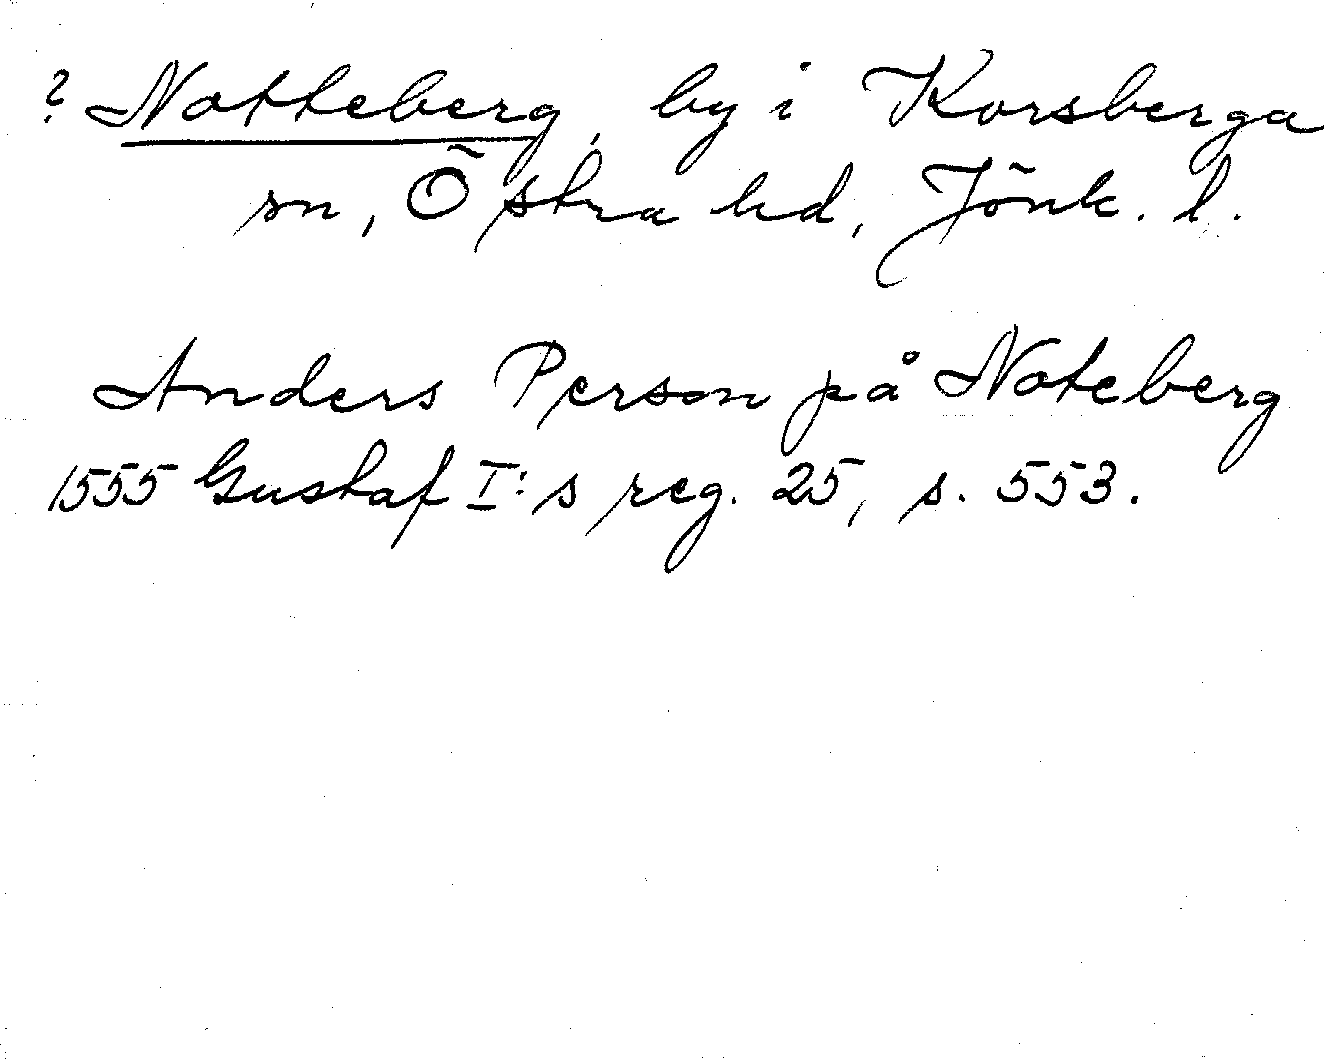 ? Notteberg, by i Korsberga
sn, Östra hd, Jönk. l.
Anders Person på Noteberg
1555 Gustaf I:s reg. 25, s. 553.